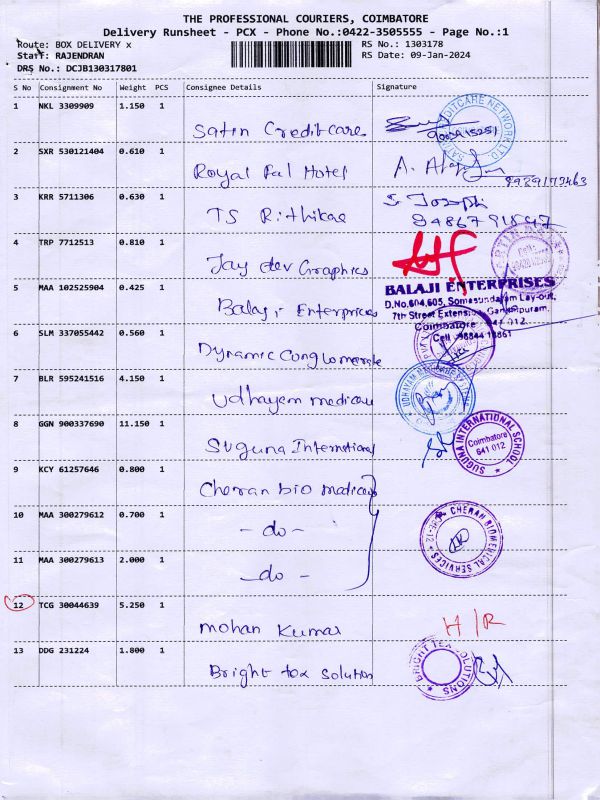 THE PROFESSIONAL COURIERS, COIMBATORE
Delivery Runsheet - PCX - Phone No.:0422-3505555 - Page No.:1
Route: BOX DELIVERY x RS No.: 1303178
Staff: RAJENDRAN RS Date: 09-Jan-2024
DRS No.: DCJB130317801
S No Consignment No Weight PCS Consignee Details Signature
1 NKL 3309909 1.150 1
Satin Creditcare
2 SXR 530121404 0.610 1
Royal Pal Hotel
3 KRR 5711306 0.630 1
TS Rithikaa S. Joseph
4 TRP 7712513 0.810 1
Jay dev Graphics
5 MAA 102525904 0.425 1 BALAJI ENTERPRISES
D.No.604,605, Somasundaram Lay-out,
Balaji Enterprises 7th Street Extension, Gandhipuram,
Coimbatore - 641 012
6 SLM 337055442 0.560 1 Cell : 98844 18661
Dynamic Conglomerate
7 BLR 595241516 4.150 1
Udhayam medicau UDHAYAM
8 GGN 900337690 11.150 1
Suguna International SUGUNA INTERNATIONAL SCHOOL
Coimbatore
641 012
9 KCY 61257646 0.800 1
Cheran bio medicau
10 MAA 300279612 0.700 1
- do - CHERAN BIOMEDICAL SERVICES
11 MAA 300279613 2.000 1
- do -
12 TCG 30044639 5.250 1
Mohan Kumar H/R
13 DDG 231224 1.800 1
Bright tax solution BRIGHT TEX SOLUTIONS